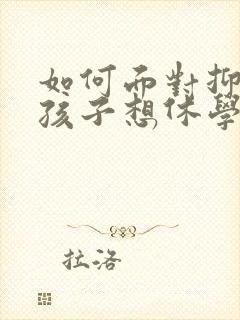 如何面對抑
孩子想休學
拉洛